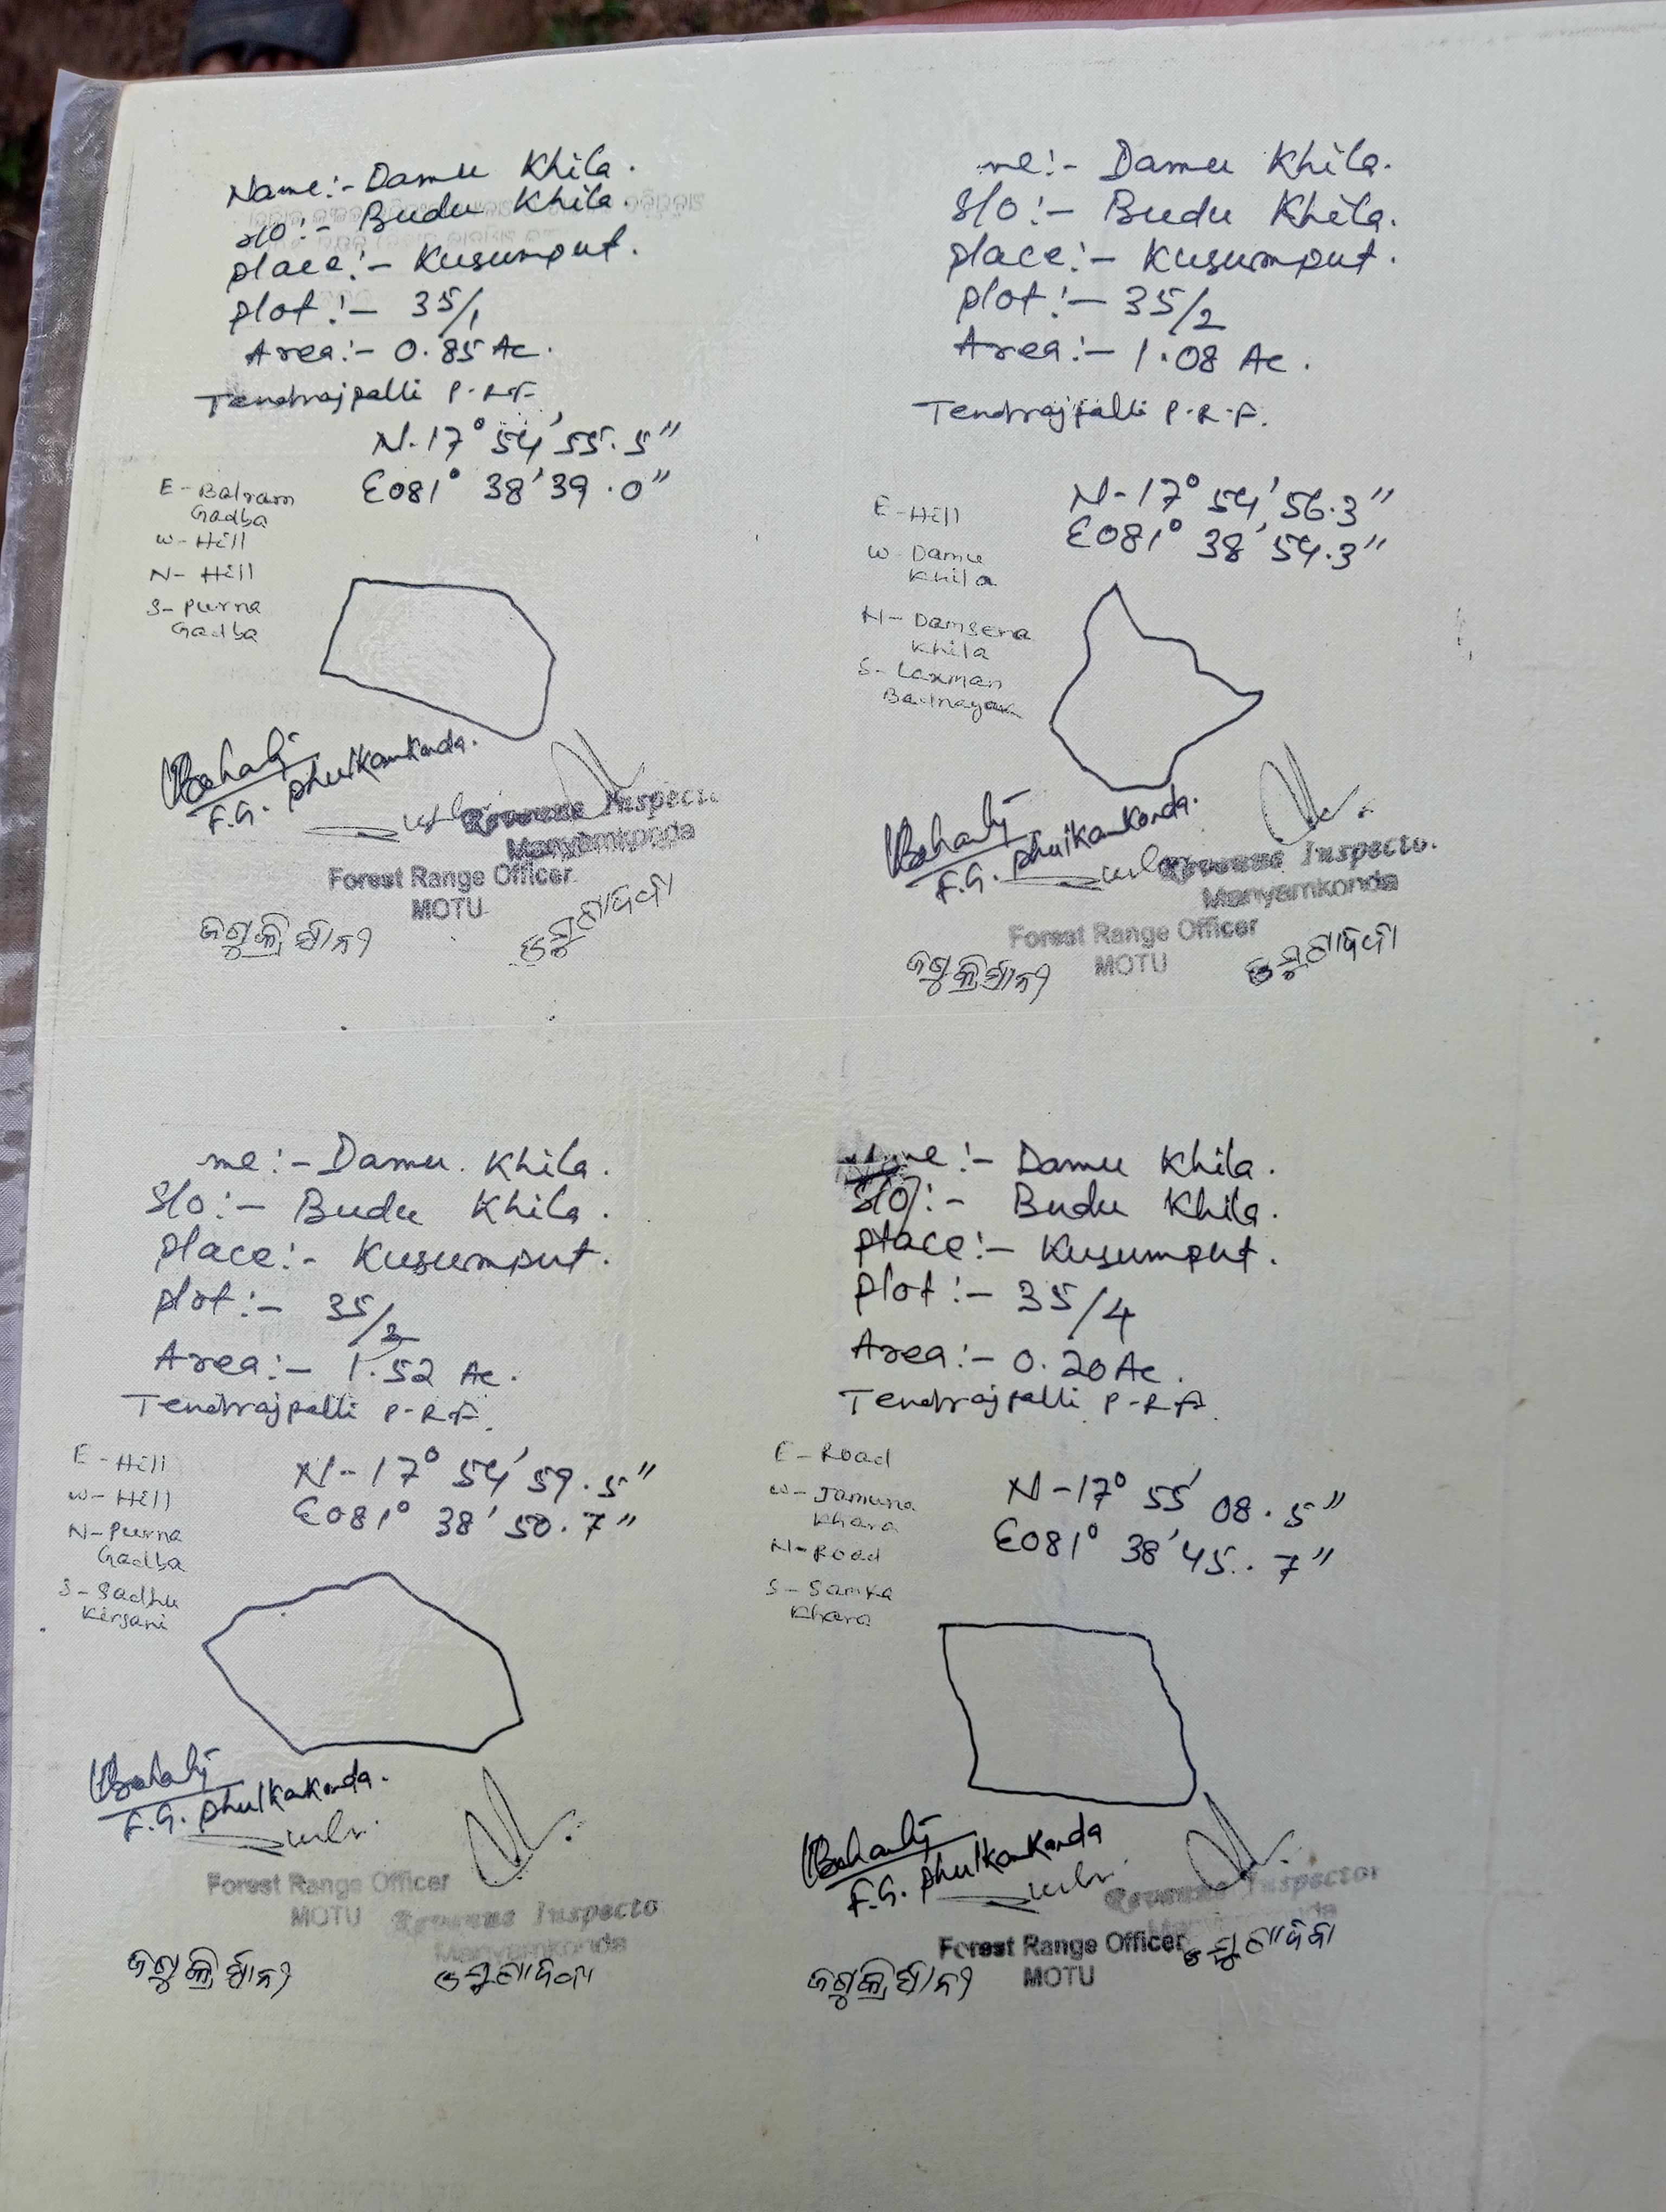 Name:- Damu Khila.
S/O:- Budu Khila.
place:- Kusumput.
plot:- 35/1
Area:- 0.85 Ac.
Tendrajpalli P.R.F.
N-17° 54' 55.5"
E081° 38' 39.0"
E- Balram
Gadba
W- Hill
N- Hill
S- Purna
Gadba
F.G. Phulkamkonda.
Revenue Inspecto
Manyamkonda
Forest Range Officer
MOTU
me:- Damu Khila.
S/o:- Budu Khila.
place:- Kusumput.
plot:- 35/2
Area:- 1.08 Ac.
Tendrajpalli P.R.F.
N-17° 54' 56.3"
E081° 38' 54.3"
E- Hill
W- Damu
Khila
N- Damsena
Khila
S- Laxman
Badnayak
F.G. Phulkamkonda.
Revenue Inspecto.
Manyamkonda
Forest Range Officer
MOTU
me:- Damu Khila.
S/o:- Budu Khila.
place:- Kusumput.
plot:- 35/3
Area:- 1.52 Ac.
Tendrajpalli P.R.F.
N-17° 54' 59.5"
E081° 38' 50.7"
E- Hill
W- Hill
N- Purna
Gadba
S- Sadhu
Kirsani
F.G. Phulkakonda.
Forest Range Officer
MOTU
Revenue Inspecto
Manyamkonda
Name:- Damu Khila.
S/O:- Budu Khila.
place:- Kusumput.
plot:- 35/4
Area:- 0.20 Ac.
Tendrajpalli P.R.F.
N-17° 55' 08.5"
E081° 38' 45..7"
E- Road
W- Jamuna
Khara
N- Road
S- Samka
Khara
F.G. Phulkamkonda
Revenue Inspector
Manyamkonda
Forest Range Officer
MOTU